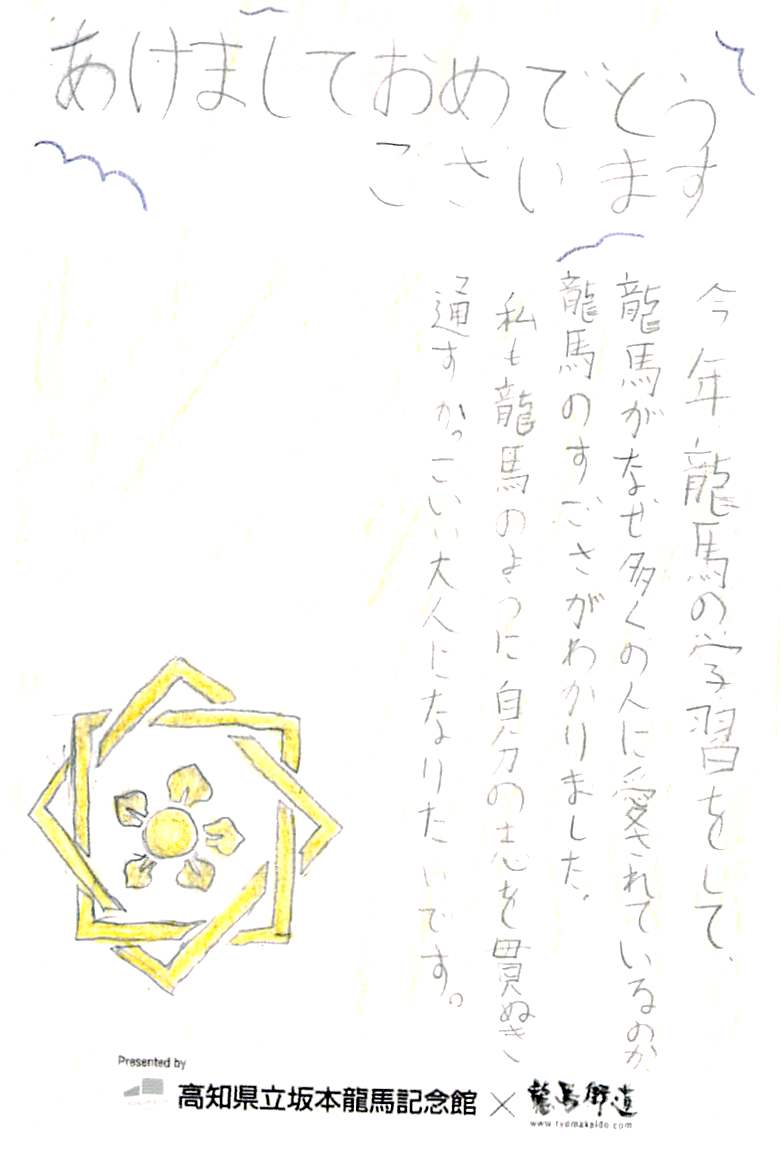 あけましておめでとう
ございます
今年龍馬の学習をして、
龍馬がなぜ多くの人に愛されているのか、
龍馬のすごさがわかりました。
私も龍馬のように自分の志を貫ぬき
通すかっこいい大人になりたいです。
Presented by
高知県立坂本龍馬記念館×龍馬街道
www.ryomakaido.com